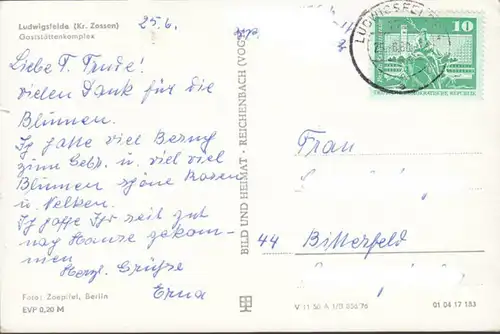 Ludwigsfelde (Kr. Zossen)
Gaststättenkomplex
25.6.
Liebe T. Trude!
vielen Dank für die
Blumen.
Ich hatte viel Besuch
zum Geb. u. viel viel
Blumen schöne Rosen
u. Nelken.
Ich hoffe Ihr seit gut
nach Hause gekom-
men
Herzl. Grüße
Erna
Foto: Zoepffel, Berlin
EVP 0,20 M
BILD UND HEIMAT · REICHENBACH (VOGTL)
LUDWIGSFEL
10
DEUTSCHE DEMOKRATISCHE REPUBLIK
Frau
44 Bitterfeld
V 11 50 A 1/B 856/76
01 04 17 183